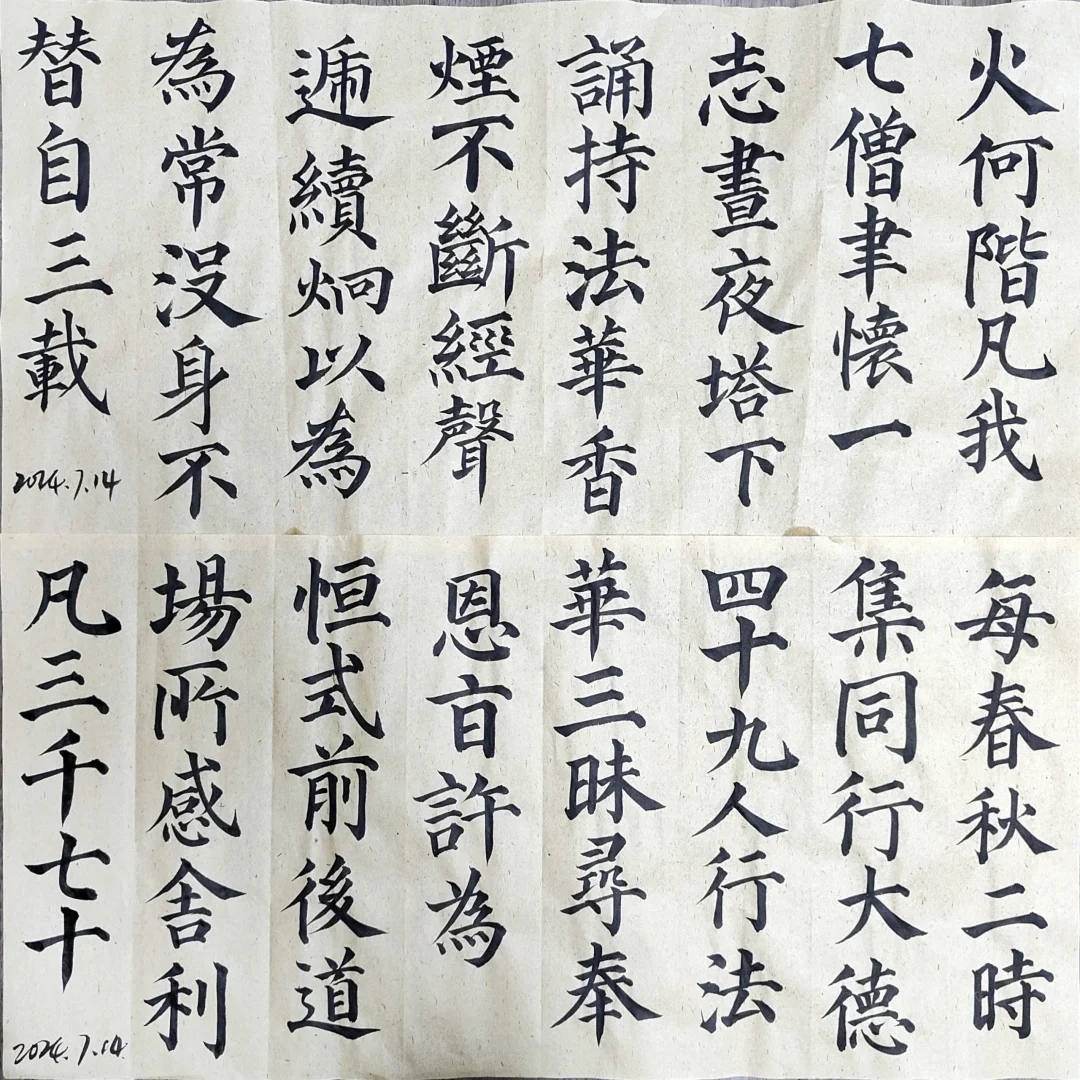 火何階凡我
七僧聿懷一
志晝夜塔下
誦持法華香
煙不斷經聲
遞續炯以為
為常沒身不
替自三載
2024.7.14
每春秋二時
集同行大德
四十九人行法
華三昧尋奉
恩旨許為
恒式前後道
場所感舍利
凡三千七十
2024.7.14